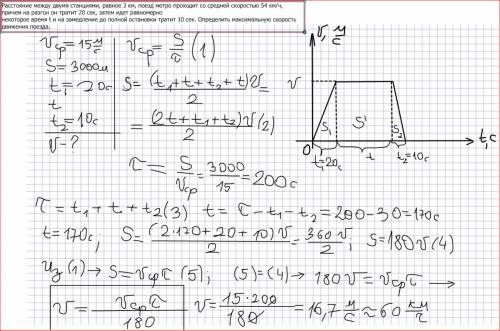 Расстояние между двумя станциями, равное 3 км, поезд метро проходит со средней скоростью 54 км/ч,
причем на разгон он тратит 20 сек, затем идет равномерно
некоторое время t и на замедление до полной остановки тратит 10 сек. Определить максимальную скорость
движения поезда.
υср = 15 м/с
S = 3000м
t₁ = 20с
t
t₂ = 10с
υ - ?
υср = S/τ (1)
S = (t₁+t+t₂+t)υ/2 =
= (2t+t₁+t₂)υ/2 (2)
τ = S/υср = 3000/15 = 200с
υ, м/с
υ
S₁ S' S₂
0 t, с
t₁=20с t t₂=10с
τ = t₁ + t + t₂ (3) t = τ - t₁ - t₂ = 200 - 30 = 170с
t = 170с, S = (2·170+20+10)υ/2 = 360/2 υ, S = 180υ (4)
Из (1) → S = υср τ (5); (5) = (4) → 180υ = υср τ →
υ = υср τ/180 υ = 15·200/180 = 16,7 м/с ≈ 60 км/г